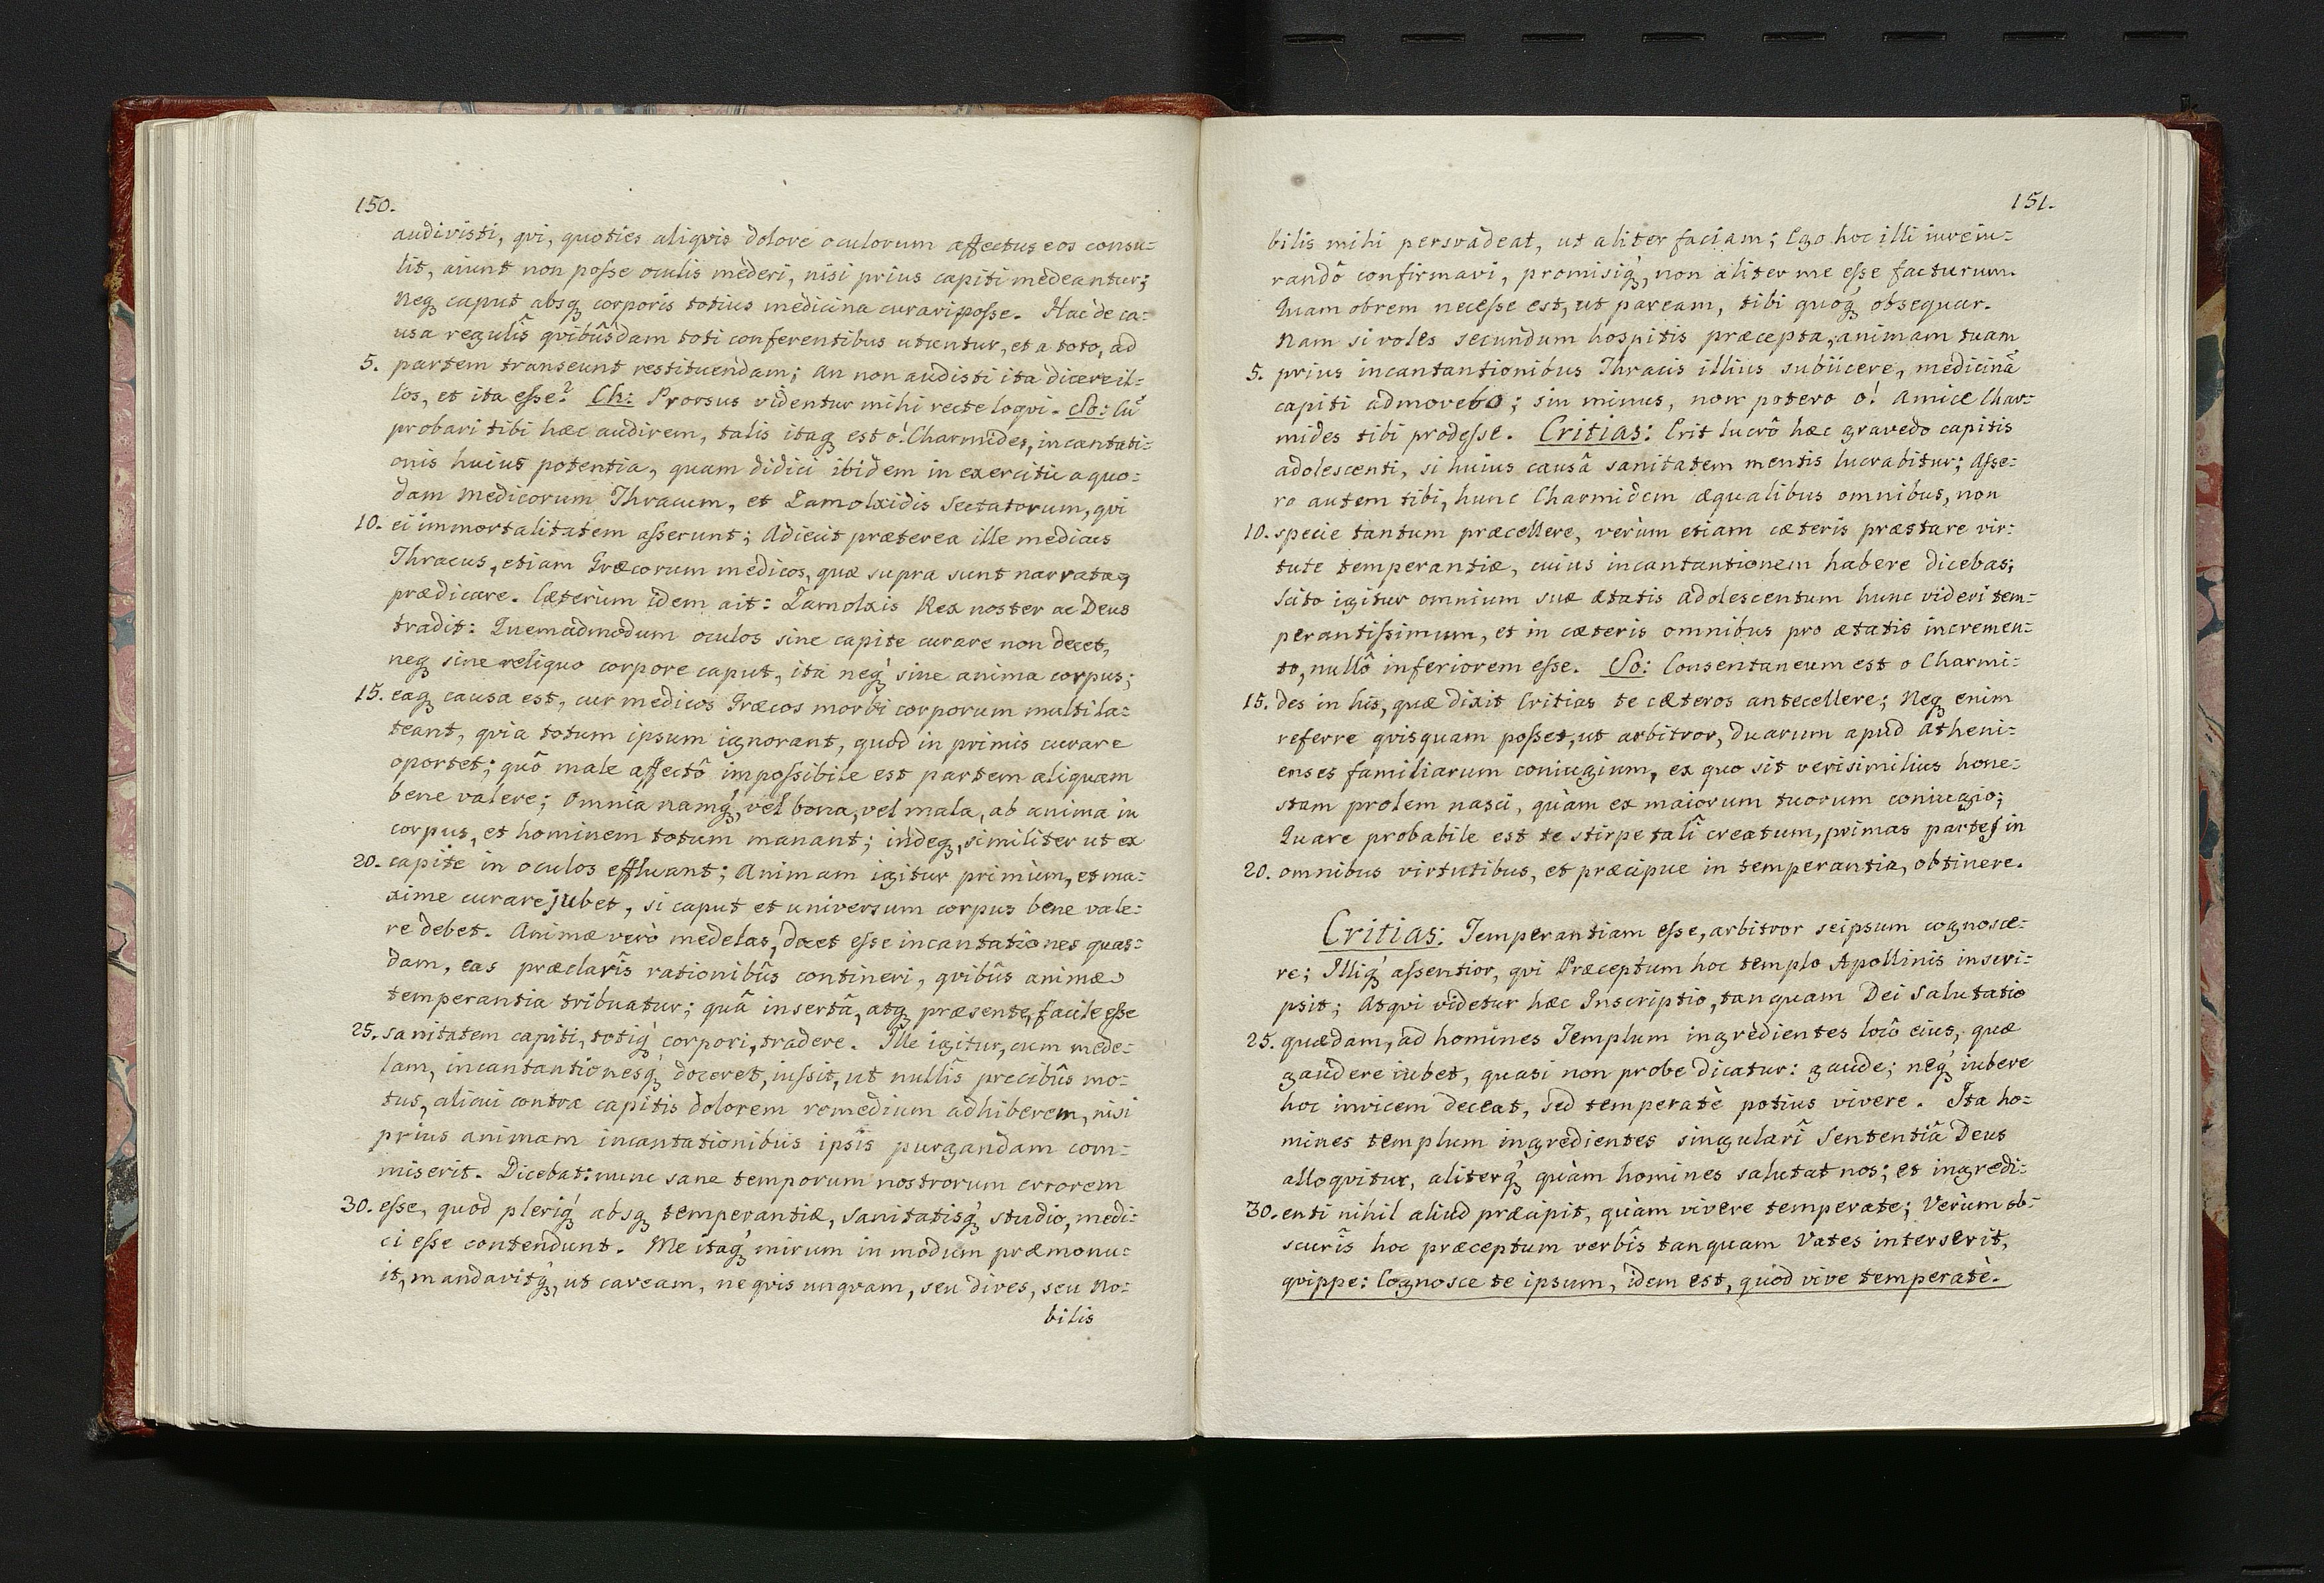 150.
audivisti, qvi, quoties aliqvis dolore oculorum affectus eos consu=
lit, aiunt non posse oculis mederi, nisi prius capiti medeantur;
Neq₃ caput absq₃ corporis totius medicina curari posse. Hac de ca=
usa regulîs qvibûsdam toti conferentibus utuntur, et a toto, ad
5. partem transeunt restituendam; an non audisti ita dicere il=
los, et ita esse? Ch: Prorsus videntur mihi recte loqvi. So: Cũ
probari tibi hæc audirem, talis itaq₃ est o! Charmides, incantati=
onis huius potentia, quam didici ibidem in exercitu a quo=
dam Medicorum Thracum, et Zamolxidis Sectatorum, qvi
10. ei immortalitatem asserunt; Adiecit præterea ille medicus
Thracus, etiam Græcorum medicos, quæ supra sunt narrata,
prædicare. Cæterum idem ait: Zamolxis Rex noster ac Deus
tradit: Quemadmodum oculos sine capite curare non decet,
neq₃ sine reliquo corpore caput, ita neq́₃ sine anima corpus;
15. eaq₃ causa est, cur medicos Græcos morbi corporum multi la=
teant, qvia totum ipsum ignorant, quod in primis curare
oportet; quô male affectô impossibile est partem aliquam
bene valere; Omnia namq́₃, vel bona, vel mala, ab anima in
corpus, et hominem totum manant; indeq₃, similiter ut ex
20. capite in oculos effluant; Animam igitur primùm, et ma=
xime curare jubet, si caput et universum corpus bene vale=
re debet. Animæ verò medelas, docet esse incantationes quas=
dam, eas præclarîs rationibûs contineri, qvibûs animæ
temperantia tribuatur; quâ insertâ, atq₃ præsente, facile esse
25. sanitatem capiti, totiq́₃ corpori, tradere. Ille igitur, cum mede=
lam, incantantionesq́₃ doceret, iussit, ut nullîs precibûs mo=
tus, alicui contra capitis dolorem remedium adhiberem, nisi
prius animam incantationibus ipsîs purgandam com=
miserit. Dicebat: nunc sane temporum nostrorum errorem
30. esse, quod pleriq́₃ absq₃ temperantiæ, sanitatisq́₃ studio, medi=
ci esse contendunt. Me itaq́₃ mirum in modum præmonu=
it, mandavitq́₃, ut caveam, ne qvis unqvam, seu dives, seu No=
bilis
151.
bilis mihi persvadeat, ut aliter faciam; Ego hoc illi iureiu=
randô confirmavi, promisiq́₃, non aliter me esse facturum.
Quam obrem necesse est, ut paream, tibi quoq́₃ obsequar.
Nam si voles secundum hospitis præcepta, animam tuam
5. prius incantantionibus Thracis illius subiicere, medicinã
capiti admovebo; sin minus, non potero o! Amice Char=
mides tibi prodesse. Critias: Erit lucrô hæc gravedo capitis
adolescenti, si huius causâ sanitatem mentis lucrabitur; Asse=
ro autem tibi, hunc Charmidem æqualibus omnibus, non
10. specie tantum præcellere, verùm etiam cæteris præstare vir=
tute temperantiæ, cuius incantantionem habere dicebas;
Scito igitur omnium suæ ætatis Adolescentum hunc videri tem=
perantissimum, et in cæteris omnibus pro ætatis incremen=
to, nullô inferiorem esse. So: Consentaneum est o Charmi=
15. des in his, quæ dixit Critias te cæteros antecellere; Neq₃ enim
referre qvisquam posset, ut arbitror, duarum apud Atheni=
enses familiarum coniugium, ex quo sit verisimilius hone=
stam prolem nasci, quàm ex maiorum tuorum coniugio;
Quare probabile est te stirpe talî creatum, primas partes in
20. omnibus virtutibus, et præcipue in temperantia, obtinere.
Critias: Temperantiam esse, arbitror seipsum cognosce=
re; Illiq́₃ assentior, qvi Præceptum hoc templo Apollinis inscri=
psit; Atqvi videtur hæc Inscriptio, tanquam Dei Salutatio
25. quædam, ad homines Templum ingredientes locô eius, quæ
gaudere iubet, quasi non probe dicatur: gaude; neq́₃ iubere
hoc invicem deceat, sed temperatè potius vivere. Ita ho=
mines templum ingredientes singularî Sententiâ Deus
alloqvitur, aliterq́₃ quàm homines salutat nos; et ingredi=
30. enti nihil aliud præcipit, quàm vivere temperate; Verùm ob=
scurîs hoc præceptum verbîs tanquam Vates interserit,
qvippe: Cognosce te ipsum, idem est, quod vive temperatè.